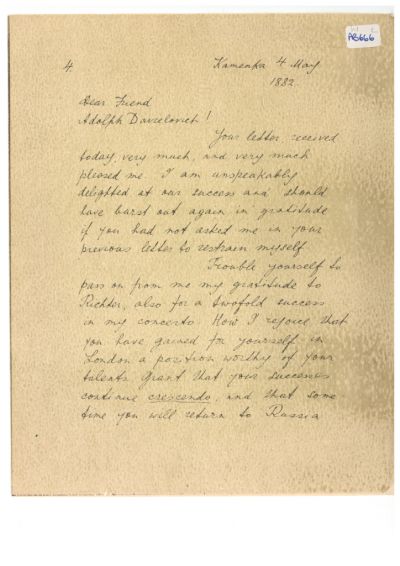 AB666
4.
Kamenka 4 May
1882.
Dear Friend
Adolph Davidovich!
Your letter, received
today, very much, and very much
pleased me. I am unspeakably
delighted at our success and should
have burst out again in gratitude
if you had not asked me in your
previous letter to restrain myself
Trouble yourself to
pass on from me my gratitude to
Richter, also for a twofold success
in my concerto. How I rejoice that
you have gained for yourself in
London a position worthy of your
talents. Grant that your successes
continue crescendo, and that some
time you will return to Russia